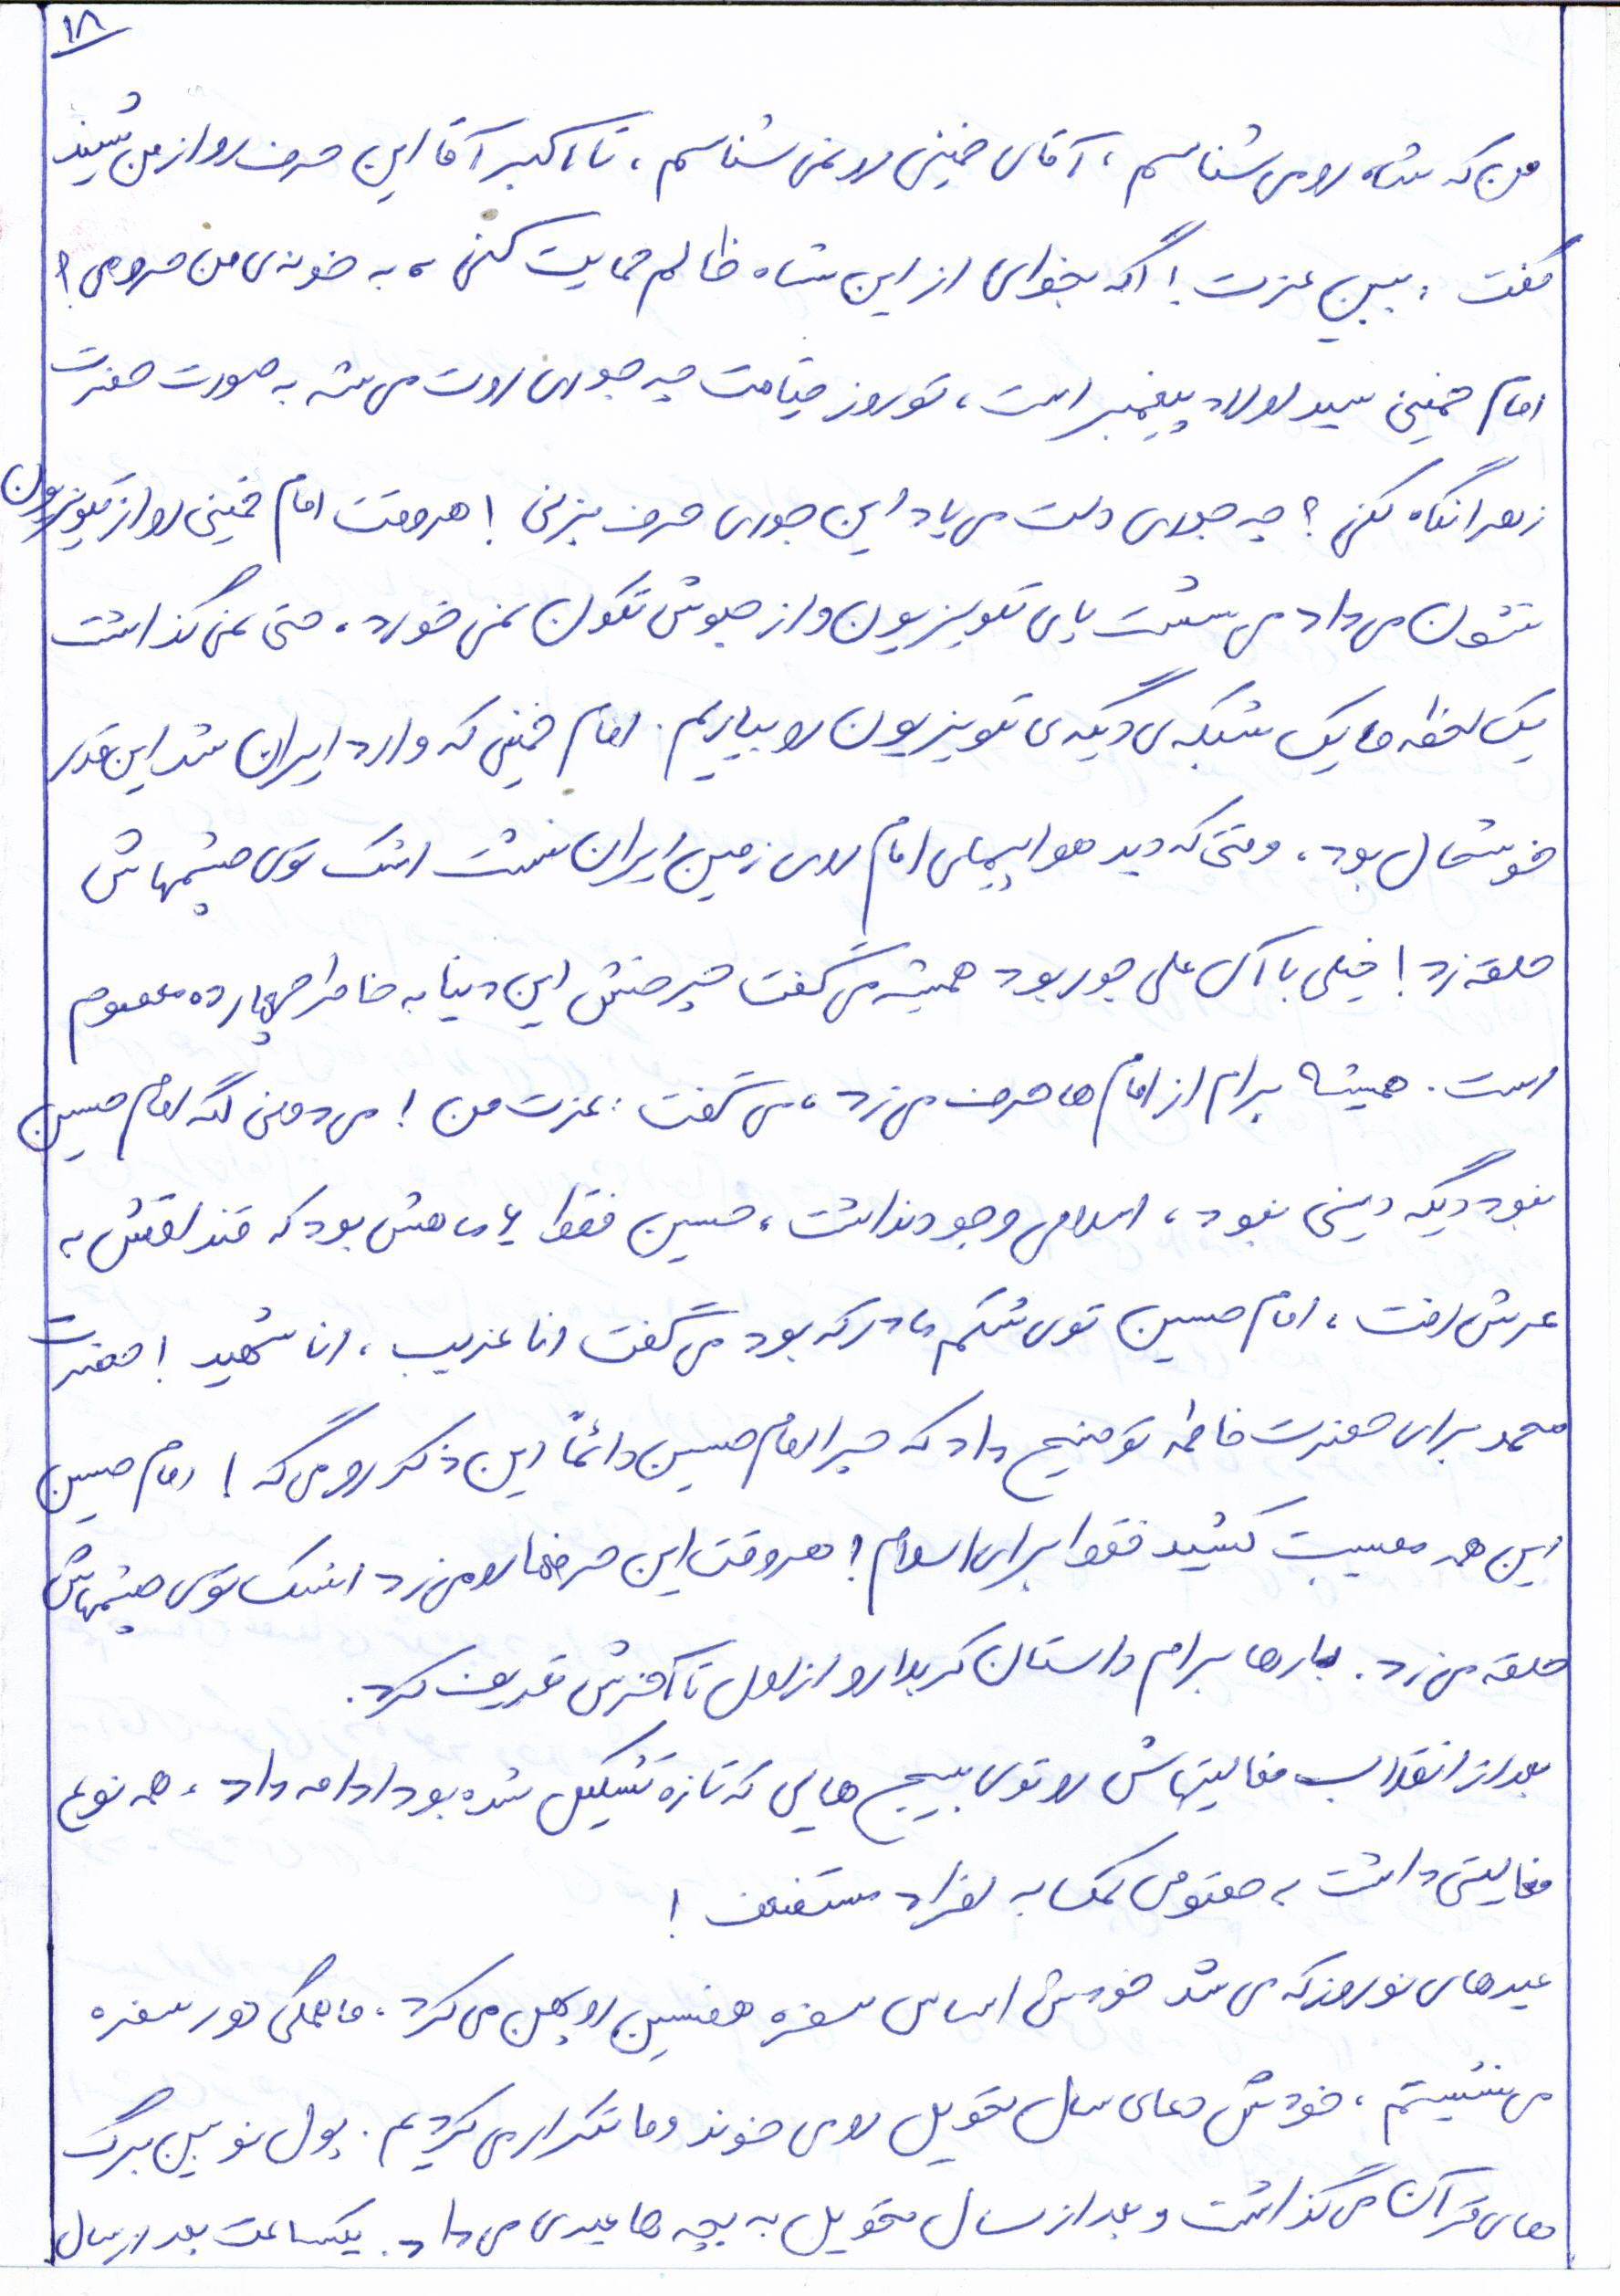 ۱۸
من که شاه رو می شناسم، آقای خمینی رو نمی شناسم، تا اکبر آقا این حرف رو از من شنید
گفت: ببین عزت! اگه بخوای از این شاه ظالم حمایت کنی، به خونه ی من حرومی!
امام خمینی سید اولاد پیغمبر است، تو روز قیامت چه جوری روت می شه به صورت حضرت
زهرا نگاه کنی؟ چه جوری دلت می یاد این جوری حرف بزنی! هروقت امام خمینی رو از تلویزیون
نشون می داد می نشست پای تلویزیون و از جلوش تکون نمی خورد، حتی نمی گذاشت
یک لحظه ما یک شبکه ی دیگه ی تلویزیون رو بیاریم. امام خمینی که وارد ایران شد این قدر
خوشحال بود، وقتی که دید هواپیمای امام روی زمین ایران نشست اشک توی چشمهاش
حلقه زد! خیلی با آل علی جور بود همیشه می گفت چرخش این دنیا به خاطر چهارده معصوم
است. همیشه برام از امام ها حرف می زد، می گفت: عزت من! می دونی اگه امام حسین
نبود دیگه دینی نبود، اسلامی وجود نداشت، حسین فقط ۶ ماهش بود که قنداقش به
عرش رفت، امام حسین توی شکم مادر که بود می گفت انا غریب، انا شهید! حضرت
محمد برای حضرت فاطمه توضیح داد که چرا امام حسین دائماً این ذکر رو می گه! امام حسین
این همه مصیبت کشید فقط برای اسلام! هروقت این حرفها رو می زد اشک توی چشمهاش
حلقه می زد. بارها برام داستان کربلا رو از اول تا آخرش تعریف کرد.
بعد از انقلاب فعالیتهاش رو توی بسیج هایی که تازه تشکیل شده بود ادامه داد، همه نوع
فعالیتی داشت به خصوص کمک به افراد مستضعف!
عیدهای نوروز که می شد خودش اساس سفره هفسین رو پهن می کرد، ما همگی دور سفره
می نشستیم، خودش دعای سال تحویل رو می خوند و ما تکرار می کردیم. پول نو بین برگ
های قرآن می گذاشت و بعد از سال تحویل به بچه ها عیدی می داد. یکساعت بعد از سال